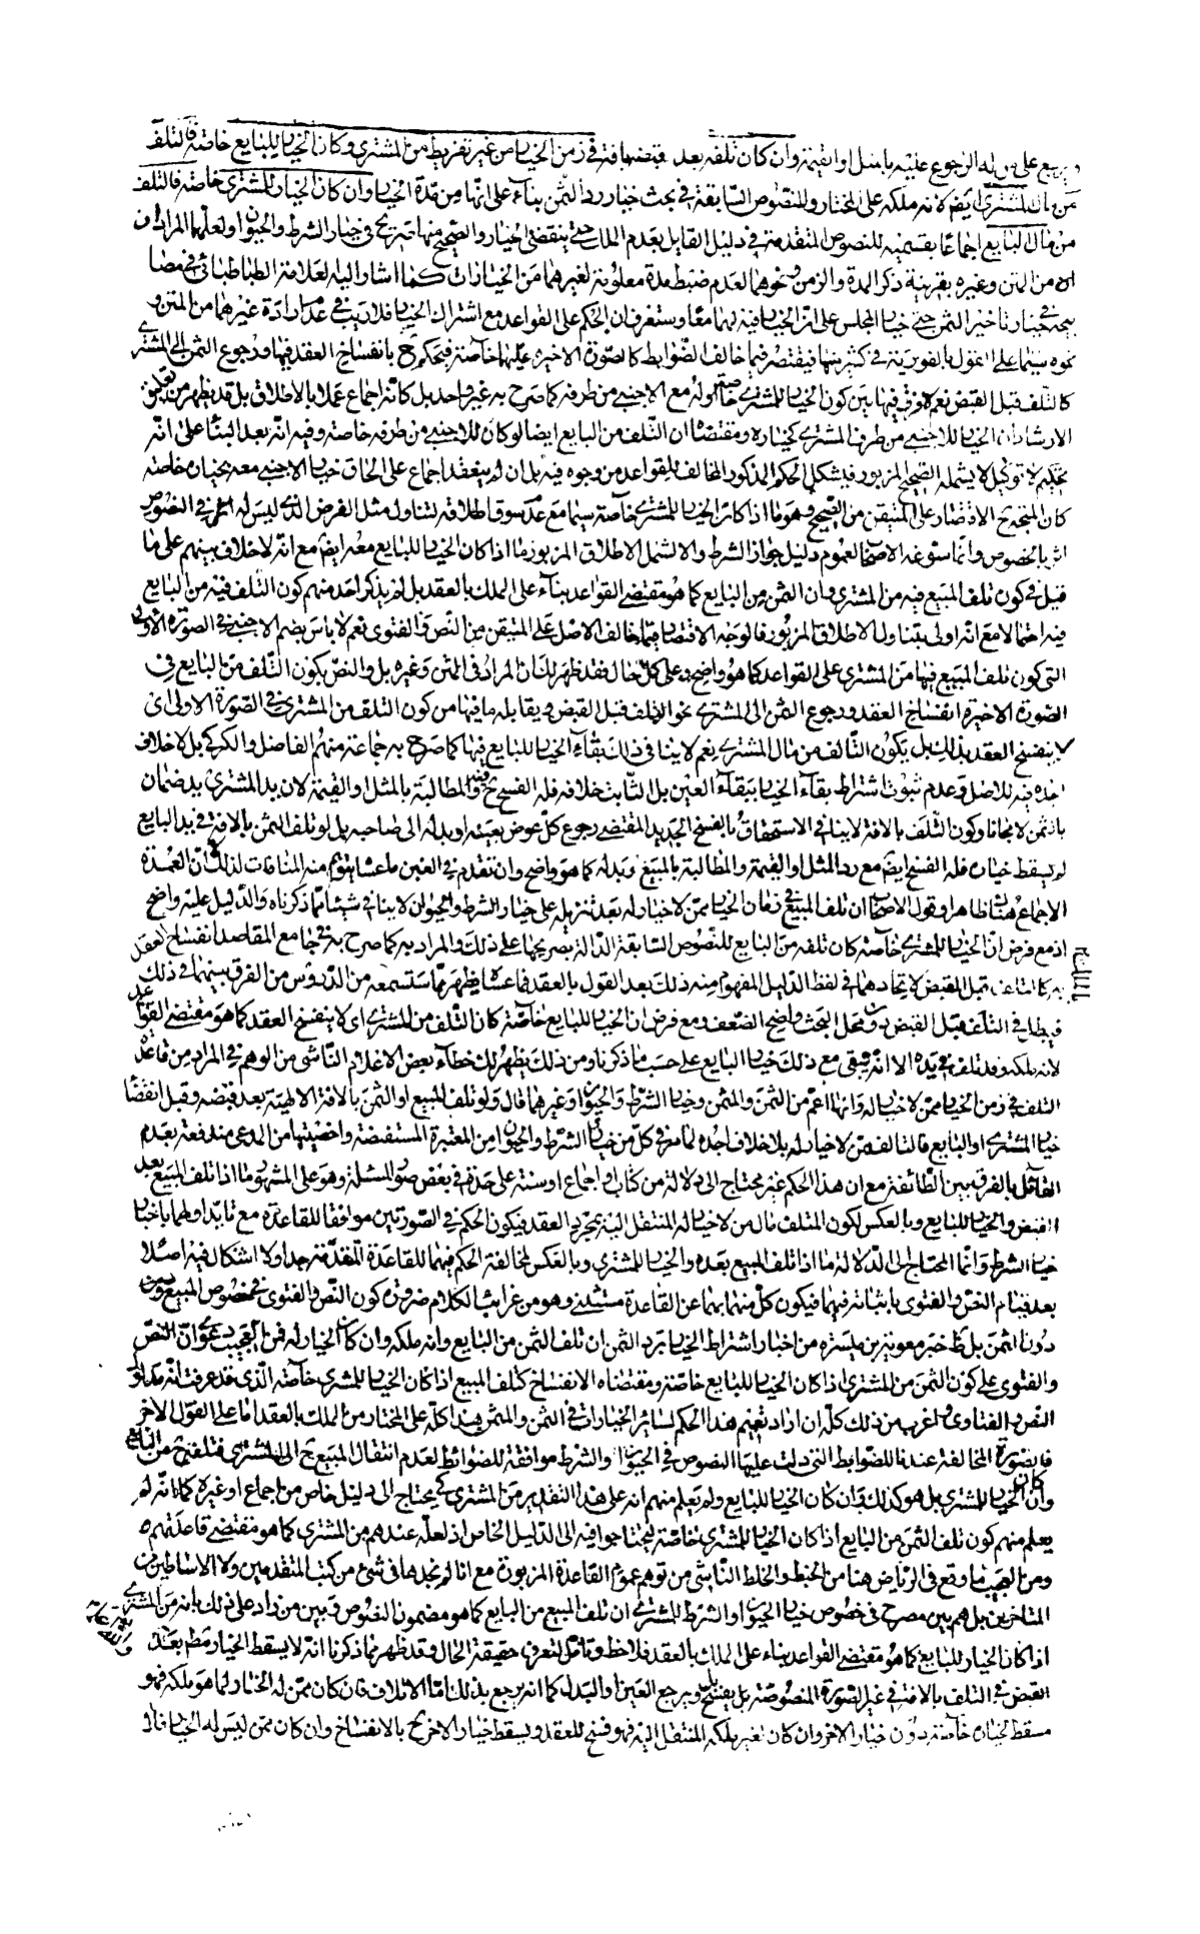 يرجع على من له الرجوع عليه بالمثل او القيمة وان كان تلفه بعد قبضه بافة في زمن الخيار من غير تفريط من المشتري وكان الخيار للبايع خاصة فالتلف
من مال المشتري ايضا لانه ملكه على المختار وللنصوص السابقة في بحث خيار رد الثمن بناء على انها من مدة الخيار وان كان الخيار للمشتري خاصة فالتلف
من مال البايع اجماعا بقسميه للنصوص المتقدمة في دليل القايل بعدم الملك حتى ينقضى الخيار والصحيح منها صريح في خيار الشرط والحيوان ولعلهما المرادان
من المتن وغيره بقرينة ذكر المدة والزمن ونحوهما لعدم ضبط مدة معلومة لغيرهما من الخيارات كما اشار اليه العلامة الطباطبائي في مصابيحه
في خيار تاخير الثمن خيار المجلس على ان الخيار فيه لهما معا وستعرف ان الحكم على القواعد مع اشتراك الخيار فلا ريب في عدم ارادة غيرهما من المتن و
نحوه سيما على القول بالفورية في كثير منها فيقتصر فيما خالف الضوابط كالصورة الاخيرة عليهما خاصة فيحكم ح بانفساخ العقد فيها ورجوع الثمن الى المشتري
كالتلف قبل القبض نعم لا فرق فيها بين كون الخيار للمشتري خاصة او له مع الاجنبي من طرفه كما صرح به غير واحد بل كانه اجماع عملا بالاطلاق بل قد يظهر من تعليق
الارشاد ان الخيار للاجنبي من طرف المشتري كخياره ومقتضاه ان التلف من البايع ايضا لو كان للاجنبي من طرفه خاصة وفيه انه بعد البناء على انه
تحكيم لا توكيل لا يشمله الصحيح المزبور فيشكل الحكم المذكور المخالف للقواعد من وجوه فيه بل ان لم ينعقد اجماع على الحاق خيار الاجنبي معه بخياره خاصة
كان المتجه ح الاقتصار على المتيقن من الصحيح وهو ما اذا كان الخيار للمشتري خاصة سيما مع عدم سوق اطلاقه لتناول مثل الفرض الذي ليس له في النصوص
اثر بالخصوص وانما سوغه الاصحاب لعموم دليل جواز الشرط والا لشمل الاطلاق المزبور ما اذا كان الخيار للبايع معه ايضا مع انه لا خلاف بينهم على ما
قيل في كون تلف المبيع فيه من المشتري وان الثمن من البايع كما هو مقتضى القواعد بناء على الملك بالعقد بل لم يذكر احد منهم كون التلف فيه من البايع
فيه احتمالا مع انه اولى بتناول الاطلاق المزبور فالوجه الاقتصار فيما خالف الاصل على المتيقن من النص والفتوى نعم لا باس بضم الاجنبي في الصورة الاولى
التي كون تلف المبيع فيها من المشتري على القواعد كما هو واضح وعلى كل حال فقد ظهر لك ان المراد في المتن وغيره بل والنص بكون التلف من البايع في
الصورة الاخيرة انفساخ العقد ورجوع الثمن الى المشتري نحو التلف قبل القبض ويقابله ما فيها من كون التلف من المشتري في الصورة الاولى اى
لا ينفسخ العقد بذلك بل يكون التالف من مال المشتري نعم لا ينافى ذلك بقاء الخيار للبايع فيها كما صرح به جماعة منهم الفاضل والكركي بل لا خلاف
اجده فيه للاصل وعدم ثبوت اشتراط بقاء الخيار ببقاء العين بل الثابت خلافه فله الفسخ ح والمطالبة بالمثل او القيمة لان يد المشتري يد ضمان
بالثمن لا مجانا وكون التلف بالافة لا ينافى الاستحقاق بالفسخ الجديد المقتضى رجوع كل عوض بعينه او بدله الى صاحبه بل لو تلف الثمن بالافة في يد البايع
لم يسقط خياره فله الفسخ ايضا مع رد المثل او القيمة والمطالبة بالمبيع وبدله كما هو واضح وان تقدم في الغبن ما عساه يتوهم منه المنافاة لذلك ان العمدة
الاجماع هناك ظاهرا وقول الاصحاب ان تلف المبيع في زمان الخيار ممن لا خيار له بعد تنزيله على خيار الشرط والحيوان لا ينافى شيئا مما ذكرناه والدليل عليه واضح
اذ مع فرض ان الخيار للمشتري خاصة كان تلفه من البايع للنصوص السابقة الدالة بصريحها على ذلك والمراد به كما صرح به في جامع المقاصد انفساخ العقد
به كالتلف قبل القبض لاتحادهما في لفظ الدليل المفهوم منه ذلك بعد القول بالعقد فما عساه يظهر مما ستسمعه من الدروس من الفرق بينهما في ذلك
فيبطل في التلف قبل القبض دون محل البحث واضح الضعف ومع فرض ان الخيار للبايع خاصة كان التلف من المشتري اى لا ينفسخ العقد كما هو مقتضى القواعد
لانه ملكه وقد تلف في يده الا انه يبقى مع ذلك خيار البايع على حسب ما ذكرنا ومن ذلك يظهر لك خطاء بعض الاعلام الناشى من الوهم في المراد من قاعدة
التلف في زمن الخيار ممن لا خيار له وانها اعم من الثمن والمثمن وخيار الشرط والحيوان وغيرهما قال ولو تلف المبيع او الثمن بالافة الالهية بعد قبضه وقبل انقضاء
خيار المشتري او البايع فالتالف ممن لا خيار له بلا خلاف اجده لما مر في كل من خيار الشرط والحيوان من المعتبرة المستفيضة واخصيتها من المدعى مندفعة بعدم
القائل بالفرق بين الطائفة مع ان هذا الحكم غير محتاج الى دلالة من كتاب او اجماع او سنة على حدة في بعض صور المسئلة وهو على المشهور ما اذا تلف المبيع بعد
القبض والخيار للبايع وبالعكس لكون المتلف مال من لا خيار له المنتقل اليه بمجرد العقد فيكون الحكم في الصورتين موافقا للقاعدة مع تايد اولهما باخبار
خيار الشرط وانما المحتاج الى الدلالة ما اذا تلف المبيع بعده والخيار للمشتري وبالعكس لمخالفة الحكم فيهما للقاعدة المتقدمة جدا ولا اشكال فيه اصلا
بعد قيام النص والفتوى باثباته فيهما فيكون كل منهما بهما عن القاعدة مستثنى وهو من غرائب الكلام ضرورة كون النص والفتوى في خصوص المبيع
دون الثمن بل ظ خبر معوية بن ميسرة من اخبار اشتراط الخيار برد الثمن ان تلف الثمن من البايع وانه ملكه وان كان الخيار له فمن العجيب دعوى ان النص
والفتوى على كون الثمن من المشتري اذا كان الخيار للبايع خاصة ومقتضاه الانفساخ كتلف المبيع اذا كان الخيار للمشتري خاصة الذي قد عرفت انه مدلول
النص والفتاوى واغرب من ذلك كله ان اراد تعميم هذا الحكم لسائر الخيارات في الثمن والمثمن هذا كله على المختار من الملك بالعقد اما على القول الاخر
فالصورة المخالفة عندنا للضوابط التي دلت عليها النصوص في الحيوان والشرط موافقة للضوابط لعدم انتقال المبيع ح الى المشتري فتلفه ح من البايع
وان كان الخيار للمشتري بل هو كذلك وان كان الخيار للبايع ولم يعلم منهم انه على هذا التقدير من المشتري كى يحتاج الى دليل خاص من اجماع او غيره كما انه لم
يعلم منهم كون تلف الثمن من البايع اذا كان الخيار للمشتري خاصة ليحتاجوا فيه الى الدليل الخاص اذ لعله عندهم من المشتري كما هو مقتضى قاعدتهم
ومن العجيب ما وقع في الرياض هنا من الخبط والخلط الناشى من توهم عموم القاعدة المزبورة مع انا لم نجدها في شئ من كتب المتقدمين ولا الاساطين من
المتاخرين بل هم بين مصرح في خصوص خيار الحيوان او الشرط للمشتري ان تلف المبيع من البايع كما هو مضمون النصوص وبين من زاد على ذلك بانه من المشتري
اذا كان الخيار للبايع كما هو مقتضى القواعد بناء على الملك بالعقد فلاحظ وتامل لتعرف حقيقة الحال وقد ظهر مما ذكرنا انه لا يسقط الخيار مط بعد
القبض في التلف بالافة في غير الصورة المنصوصة بل يفسخ ويرجع العين او البدل كما انه يرجع بذلك اما الاتلاف فان كان ممن له الخيار لما هو ملكه فهو
مسقط لخياره خاصة دون خيار الاخر وان كان لغير ملكه المنتقل اليه فهو فسخ للعقد ويسقط خيار الاخر ح بالانفساخ وان كان ممن ليس له الخيار فان